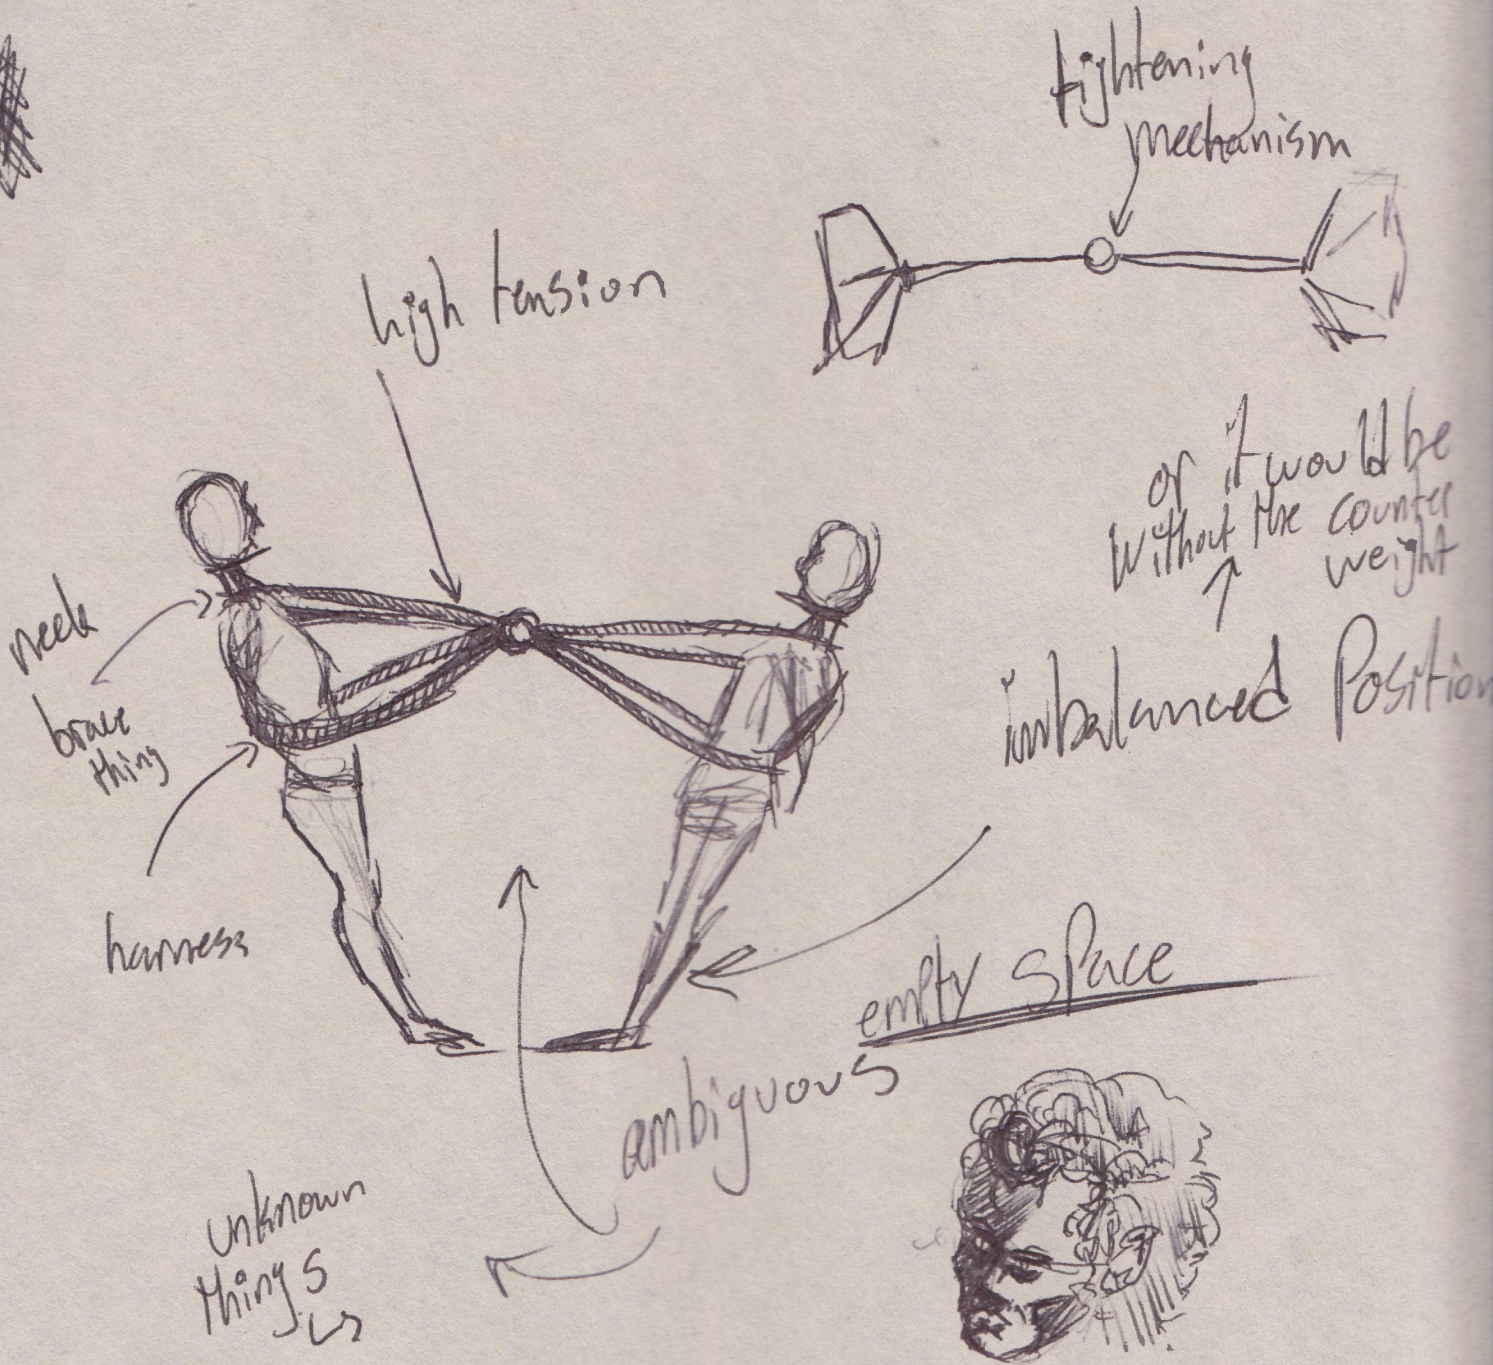 tightening
mechanism
high tension
or it would be
without the counter
weight
neck
brace
thing
imbalanced Position
harness
empty space
ambiguous
unknown
things